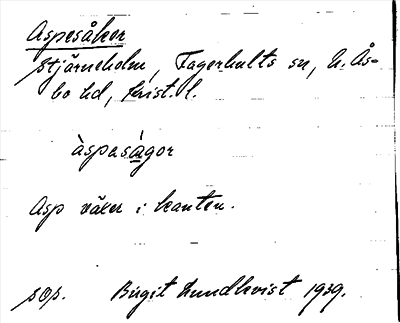 Aspesåker
Stjärneholm, Fagerhults sn, N. Ås-
bo hd, Krist. l.
àspəságor
Asp växer i kanten.
sop. Birgit Lundkvist 1939.